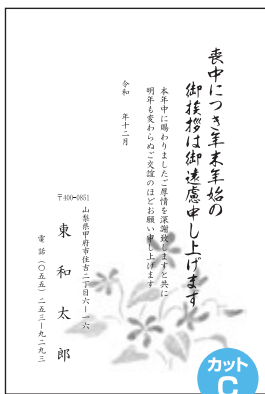 喪中につき年末年始の
御挨拶は御遠慮申し上げます
本年中に賜わりましたご厚情を深謝致しますと共に
明年も変わらぬご交誼のほどお願い申し上げます
令和　年十二月
〒400-0851
山梨県甲府市住吉二丁目六―一六
東和太郎
電話（〇五五）二五三―九二九三
カット
C